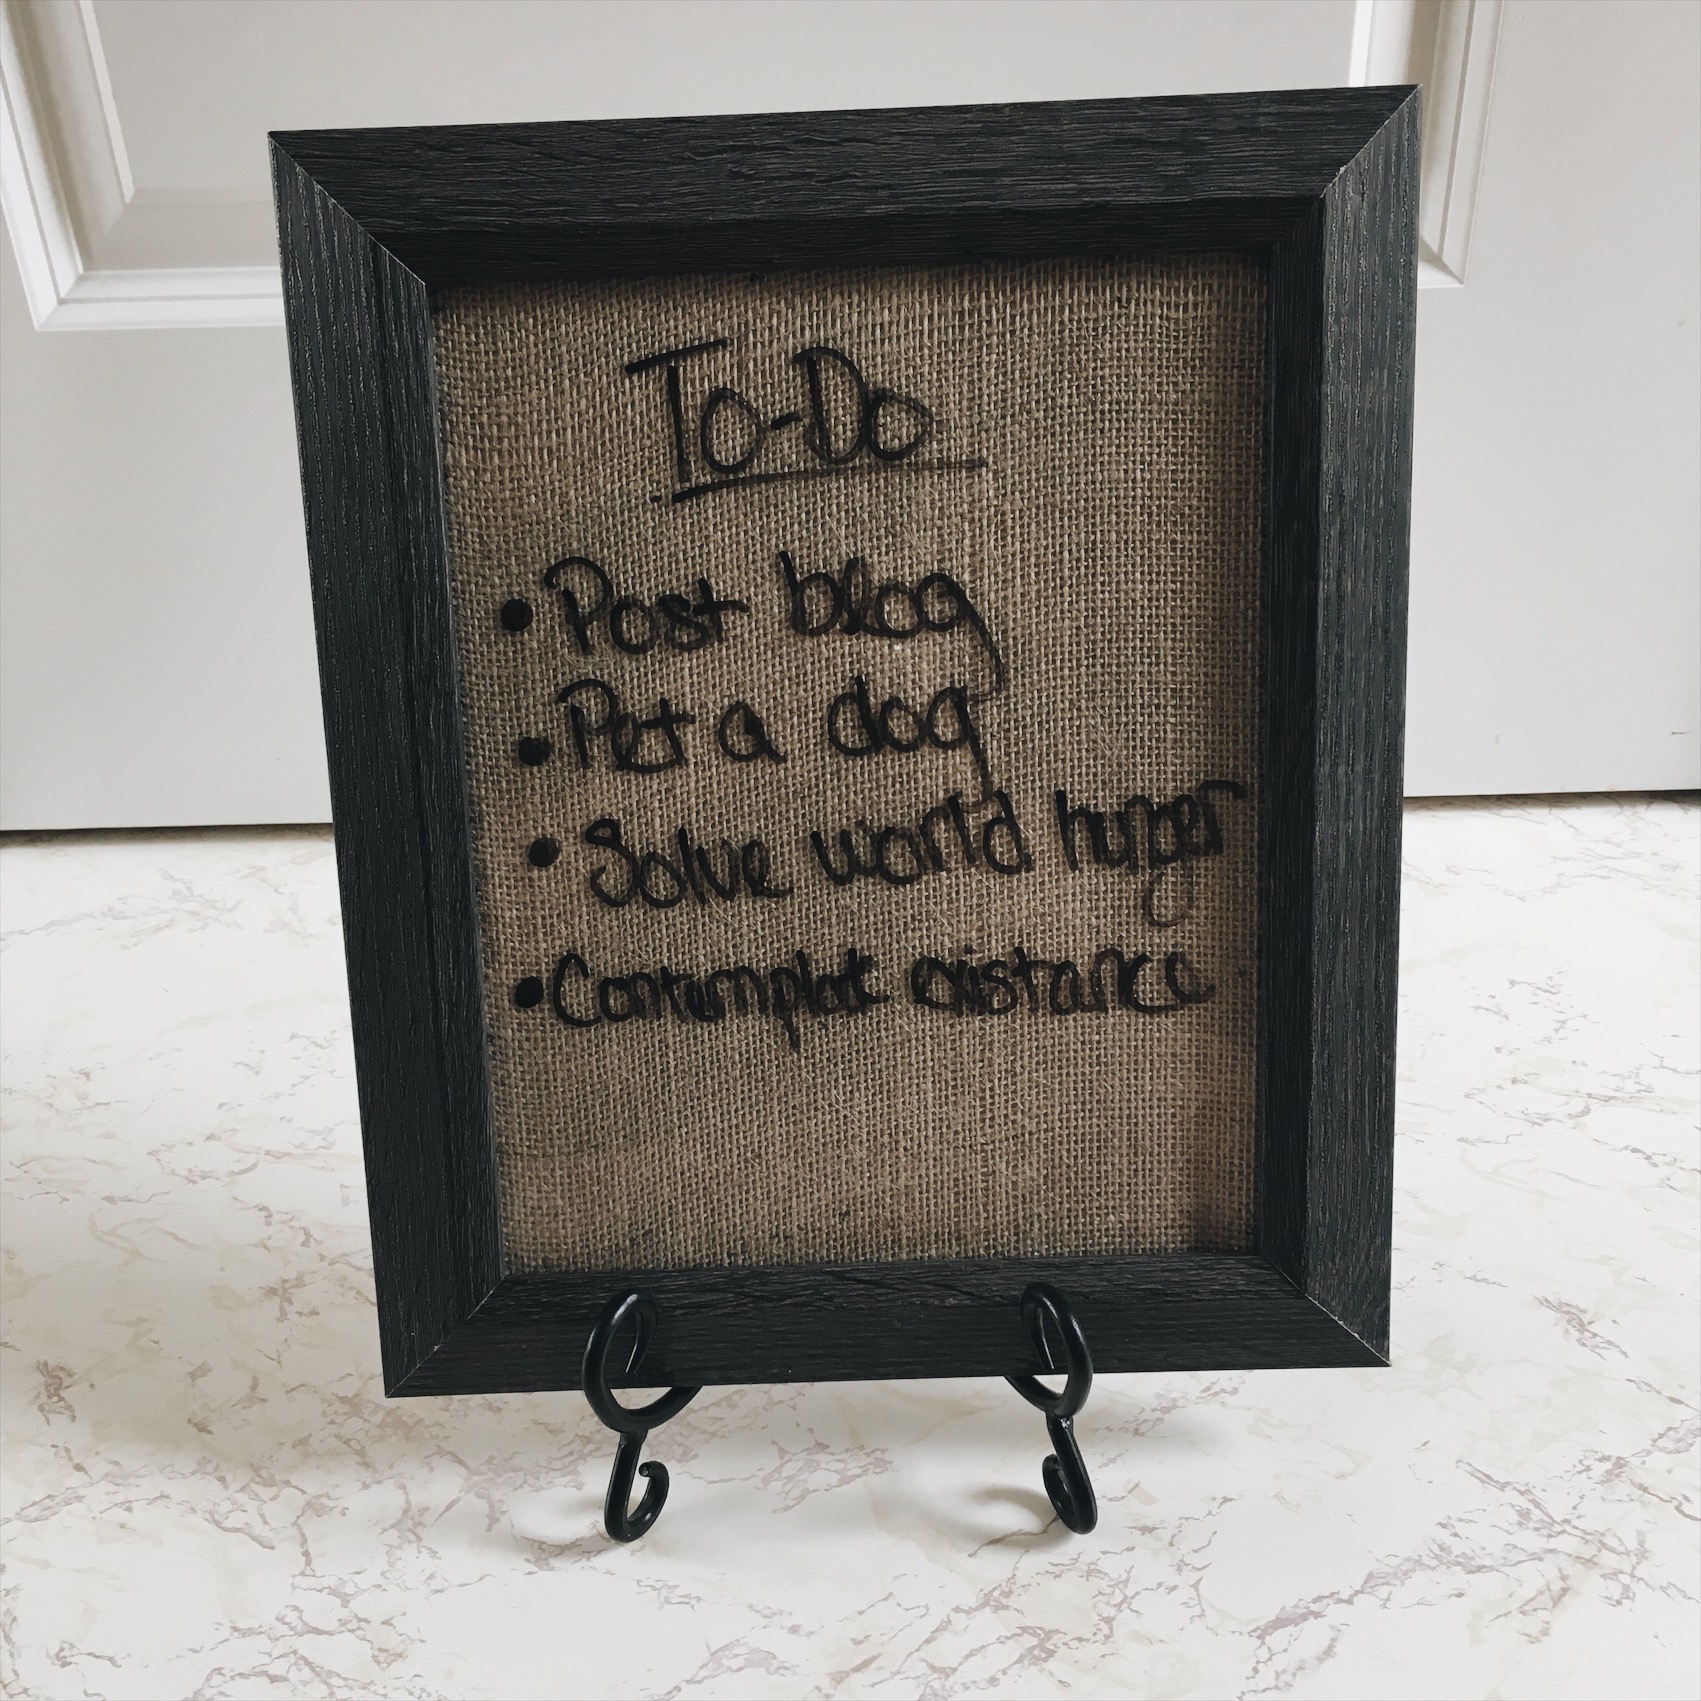 To-Do
• Post blog
• Pet a dog
• Solve world hunger
• Contemplate existance